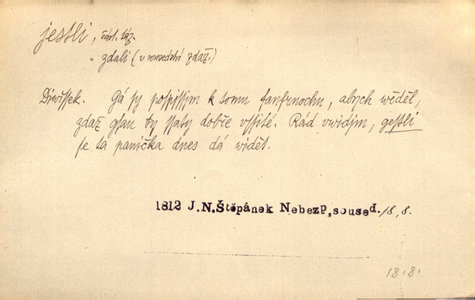 jestli, část. táz.
= zdali (v souvětí zdaž)
Diwissek. Gá sy pospissjm k tomu fanfrnochu, abych wěděl,
zdaž gsau ty ssaty dobře vssité. Rád vwidjm, gestli
se ta panička dnes dá widět.
1812 J.N.Štěpánek Nebezp. soused. 18, 8.
18.8.